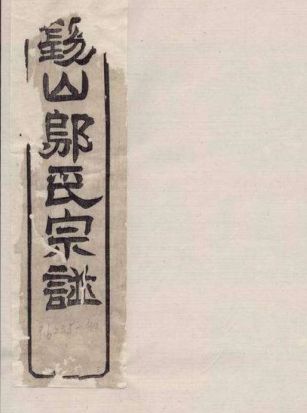 錫山鄔氏宗譜